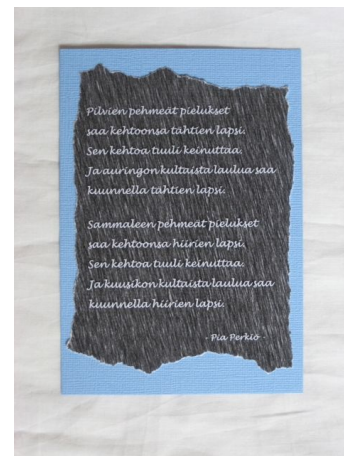 Pilvien pehmeät pielukset
saa kehtoonsa tähtien lapsi.
Sen kehtoa tuuli keinuttaa.
Ja auringon kultaista laulua saa
kuunnella tähtien lapsi.
Sammaleen pehmeät pielukset
saa kehtoonsa hiirien lapsi.
Sen kehtoa tuuli keinuttaa.
Ja kuusikon kultaista laulua saa
kuunnella hiirien lapsi.
- Pia Perkiö -